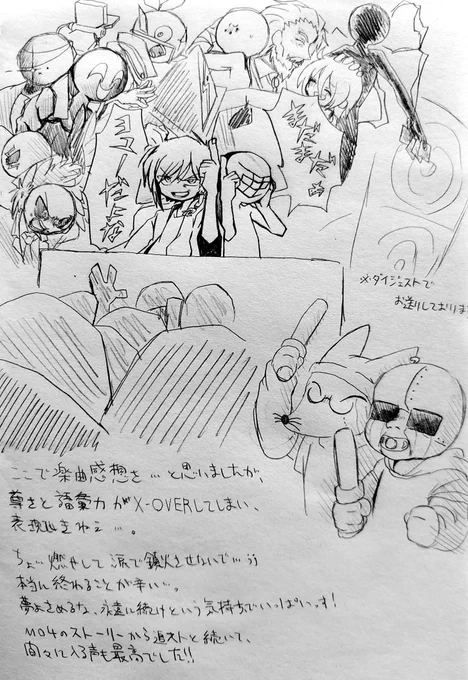 まだまだぁ
ミュージックだな
※ダイジェストで
お送りしております
ここで楽曲感想を…と思いましたが、
尊さと語彙力がX-OVERしてしまい、
表現出きねェ…。
燃やして涙で鎮火させないで…うぅ
本当に終わることが辛い…。
夢よさめるな、永遠に続けという気持ちでいっぱいっす!
M04のストーリーから追ストと続いて、
間々に入る声も最高でした!!